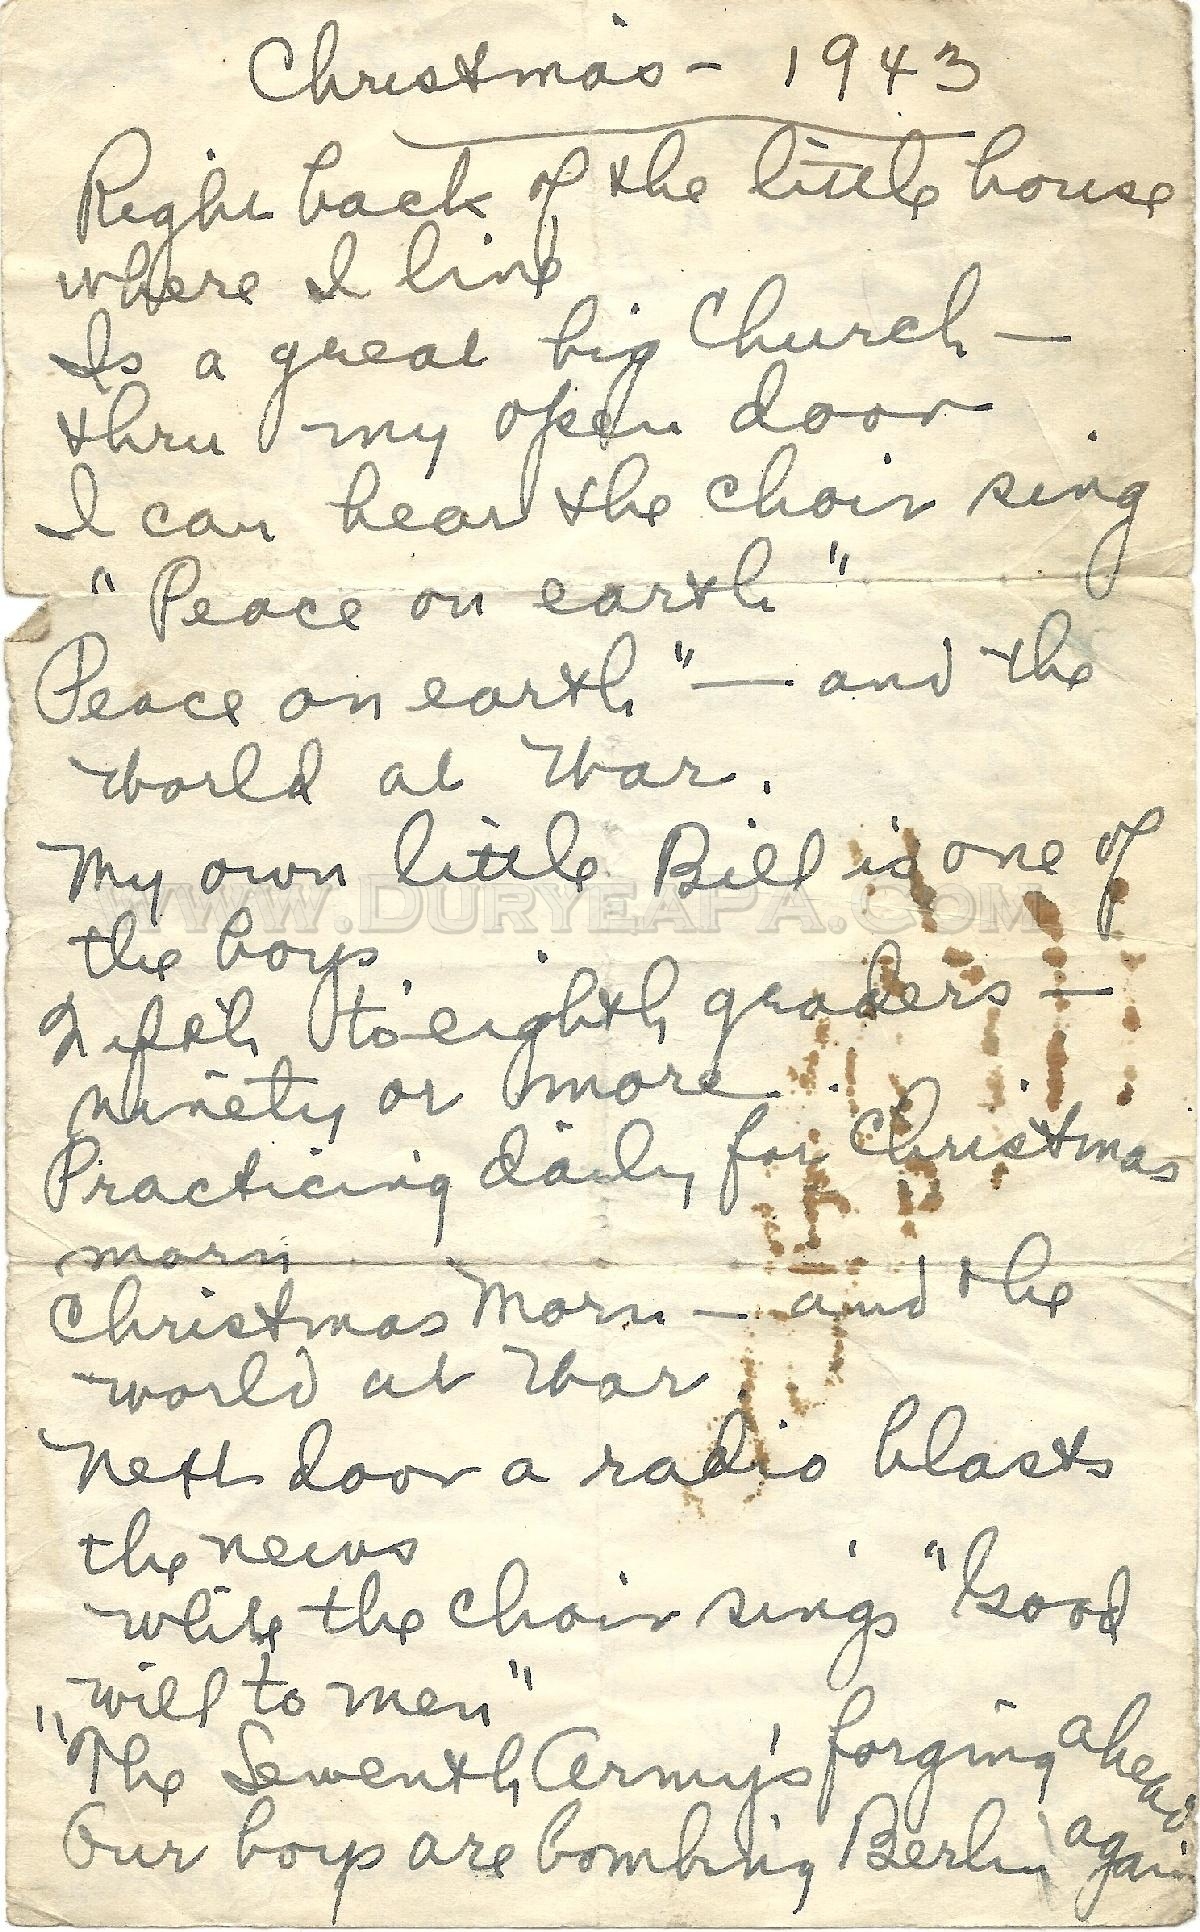 Christmas - 1943
Right back of the little house
where I live
Is a great big Church —
thru my open door
I can hear the choir sing
"Peace on earth"
Peace on earth" — and the
world at War.
My own little Bill is one of
the boys
Fifth to eighth graders —
ninety or more.
Practicing daily for Christmas
morn
Christmas Morn — and the
world at War.
Next door a radio blasts
the news
while the choir sings "Good
will to men"
"The Seventh Army's forging ahead
Our boys are bombing Berlin again
www.DuryeaPA.com